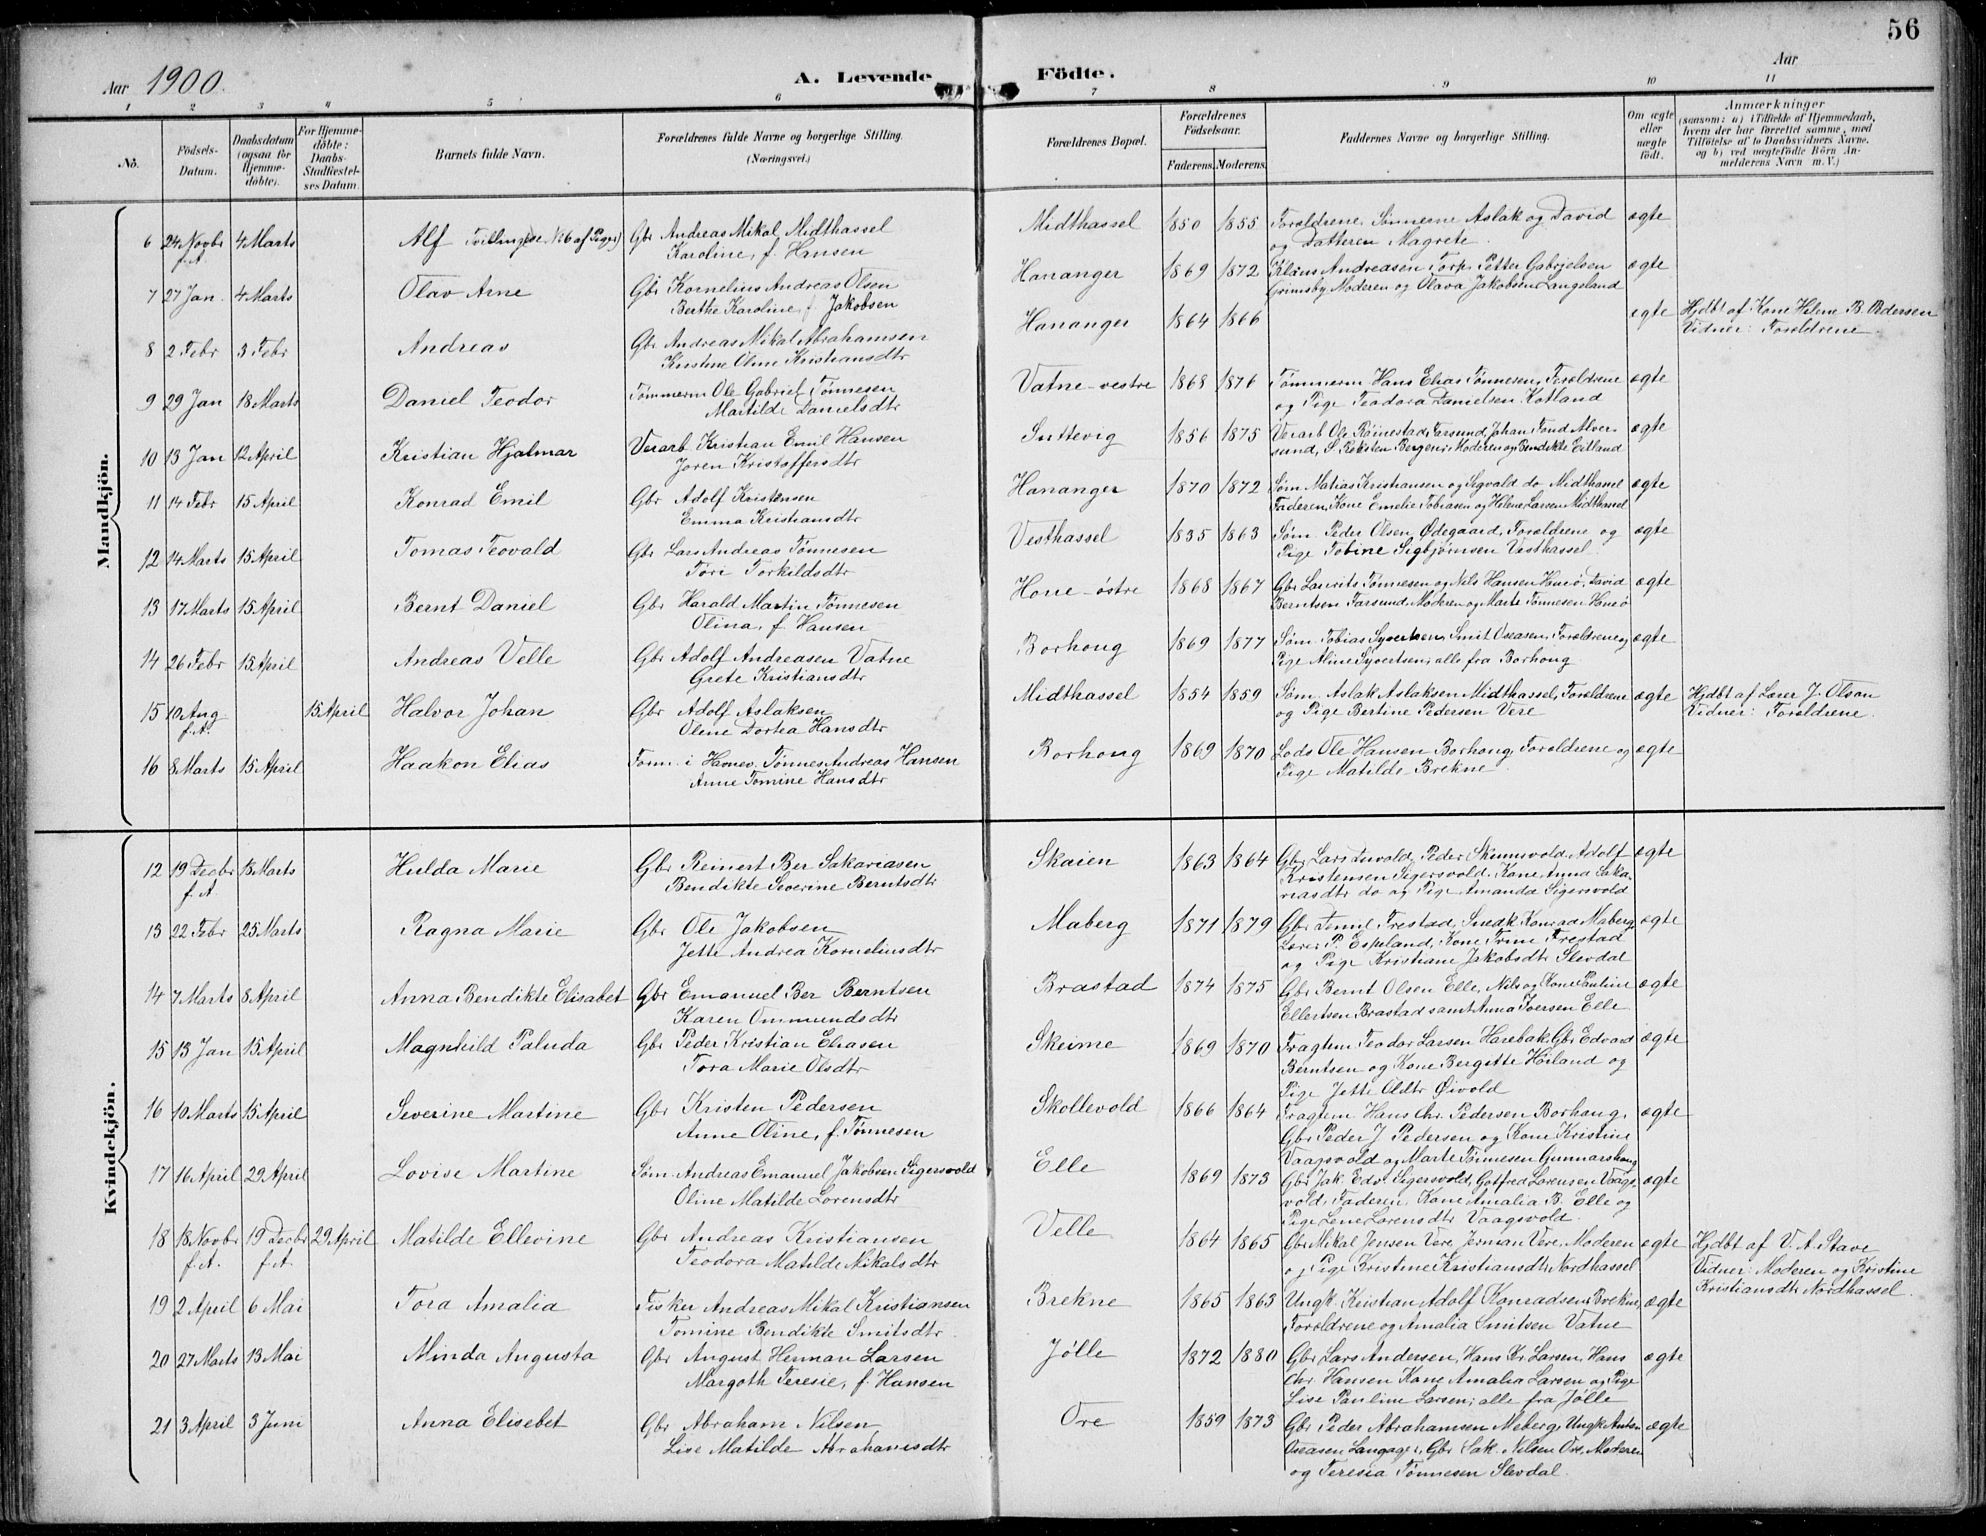 56
Aar 1900.
A. Levende Födte.
Aar
1 2 3 4 5 6 7 8 9 10 11
No.
Födsels-Datum.
Daabsdatum (ogsaa for Hjemme-döbte).
For Hjemme-döbte: Daabs-Stadfæstel-ses Datum.
Barnets fulde Navn.
Forældrenes fulde Navne og borgerlige Stilling. (Næringsvei.)
Forældrenes Bopæl.
Forældrenes Födselsaar.
Faderens. Moderens.
Faddernes Navne og borgerlige Stilling.
Om ægte eller uægte födt.
Anmærkninger (saasom: a) i Tilfælde af Hjemmedaab, hvem der har forrettet samme, med Tilföielse af to Daabsvidners Navne. og b) ved uægtefödte Börn An-melderens Navn m. V.)
Mandkjön.
6 24 Novbr f.A. 4 Marts Alf Tvillinger (se No 6 af Piger) Gbr Andreas Mikal Midthassel Midthassel 1850 1855 Forældrene, Sønnerne Aslak og David ægte
Karoline, f. Hansen og Datteren Magrete.
7 27 Jan. 4 Marts Olav Arne Gbr Kornelius Andreas Olsen Hananger 1869 1872 Klaus Andreasen Torp, Petter Gabrielsen ægte
Berthe Karoline, f. Jakobsen Grimsby, Moderen og Olava Jakobsen Langeland
8 2 Febr 3 Febr Andreas Gbr Andreas Mikal Abrahamsen Hananger 1864 1866 ægte Hjdbt af Kone Helene B. Pedersen
Kirstine Oline Kristiansdtr Vidner: Forældrene.
9 29 Jan 18 Marts Daniel Teodor Tømmerm Ole Gabriel Tønnesen Vatne-vestre 1868 1876 Tømmerm Hans Elias Tønnesen, Forældrene ægte
Martilde Danielsdtr og Pige Teodora Danielsen Kotland
10 13 Jan 12 April Kristian Hjalmar Verarb Kristian Emil Hansen 1856 1875 Verarb Ole Røinestad, Farsund, Johan Fond Alver- ægte
Joren Kristoffersdtr sund, S. Reksten Bergen, Moderen og Bendikte Eitland
11 14 Febr 15 April Konrad Emil Gbr Adolf Kristensen Hananger 1870 1872 Søm Matias Kristiansen og Sigvald do Midthassel ægte
Emma Kristiansdtr Faderen, Kone Emelie Tobiasen og Helene Larsen Midthassel
12 14 Marts 15 April Tomas Teovald Gbr Lars Andreas Tønnesen Vesthassel 1835 1863 Søm Peder Olsen Ødegaard, Forældrene og ægte
Tori Torkildsdtr Pige Tobine Sigbjørnsen Vesthassel.
13 17 Marts 15 April Bernt Daniel Gbr Harald Martin Tønnesen Hone-østre 1868 1867 Gbr Laurits Tønnesen og Nils Hansen Hone ø, David ægte
Olina, f. Hansen Berntsen Farsund, Moderen og Marte Tønnesen Hone ø
14 26 Febr 15 April Andreas Velle Gbr Adolf Andreasen Vatne Borhoug 1869 1877 Søm Tobias Syvertsen, Smit Oseasen, Forældrene og ægte
Grete Kristiansdtr Pige Aline Syvertsen, alle fra Borhoug
15 10 Aug f.A. 15 April Halvor Johan Gbr Adolf Aslaksen Midthassel 1854 1859 Søm. Aslak Aslaksen Midthassel, Forældrene ægte Hjdbt af Lærer J. Olsan
Oline Dortea Hansdtr og Pige Bertine Pedersen Vere Vidner: Forældrene.
16 8 Marts 15 April Haakon Elias Form. i Havnev. Tønnes Andreas Hansen Borhoug 1869 1870 Lods Ole Hansen Borhoug, Forældrene og ægte
Anne Tomine Hansdtr Pige Matilde Brekne.
Kvindekjön.
12 19 Decbr f.A. 18 Marts Hulda Marie Gbr Reinert Ber Sakariasen Skaien 1863 1864 Gbr Lars Duvold, Peder Skeimsvold, Adolf ægte
Bendikte Severine Berntsdtr Kristensen Sigersvold, Kone Anna Saka-
riasdtr do og Pige Amanda Sigersvold
13 22 Febr 25 Marts Ragna Marie Gbr Ole Jakobsen Maberg 1871 1879 Gbr Frestad, Snedk Konrad Maberg, ægte
Jette Andrea Korneliusdtr Lærer P. Espeland, Kone Trine Frestad
og Pige Kristiane Jakobsdtr Slevdal
14 7 Marts 8 April Anna Bendikte Elisabet Gbr Emanuel Ber Berntsen Brastad 1874 1875 Gbr Bernt Olsen Elle, Nils og Kone Pauline ægte
Karen Ommundsdtr Ellertsen Brastad samt Anna Iversen Elle
15 13 Jan 15 April Magnhild Paluda Gbr Peder Kristian Eliasen Skeime 1869 1870 Fragtem Teodor Larsen Harebak, Gbr Edvard ægte
Tora Marie Olsdtr Berntsen og Kone Bergitte Høiland og
Pige Jette Oldtr Øivold
16 10 Marts 15 April Severine Martine Gbr Kristen Pedersen Skollevold 1866 1864 Fragtem Hans Chr. Pedersen Borhaug, ægte
Anne Oline, f. Tønnesen Gbr Peder J. Pedersen og Kone Kristine
Vaagsvold og Marte Tønnesen Gunnarshaug
17 16 April 29 April Lovise Martine Søm. Andreas Emanuel Jakobsen Sigersvold Elle 1869 1873 Gbr Jak. Edv. Sigersvold, Gotfred Lorensen Vaags- ægte
Oline Matilde Lorensdtr vold, Faderen, Kone Amalia B. Elle og
Pige Lene Lorensdtr Vaagsvold.
18 18 Novbr f.A. 19 Decbr f.A. 29 April Matilde Ellevine Gbr Andreas Kristiansen Velle 1864 1865 Gbr Mikal Jensen Vere, Jerman Vere, Moderen ægte Hjdbt af V. A. Stave
Teodora Matilde Nikalsdtr og Pige Kristine Kristiansdtr Nordhassel Vidner: Moderen og Kristine
Kristiansdtr Nordhassel.
19 2 April 6 Mai Tora Amalia Fisker Andreas Mikal Kristiansen Brekne 1865 1863 Ungk. Kristian Adolf Konradsen Brekne, ægte
Tomine Bendikte Smitsdtr. Forældrene og Amalia Smitsen Vatne
20 27 Marts 13 Mai Minda Augusta Gbr August Herman Larsen Jølle 1872 1880 Gbr Lars Andersen, Hans Kr Larsen, Hans ægte
Margoth Teresie, f. Hansen Chr. Hansen Kone Amalia Larsen og Pige
Lise Pauline Larsen; alle fra Jølle
21 3 April 3 Juni Anna Elisebet Gbr Abraham Nilsen Ore 1859 1873 Gbr Peder Abrahamsen Meberg, Ungk Anton ægte
Lise Matilde Abrahamsdtr Oseasen Langager, Gbr Sak. Nilsen Ore, Moderen
og Teresia Tønnesen Slevdal.